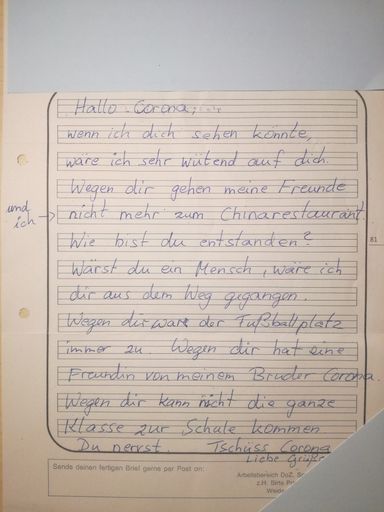 Hallo Corona,
wenn ich dich sehen könnte,
wäre ich sehr wütend auf dich.
Wegen dir gehen meine Freunde
und
ich
nicht mehr zum Chinarestaurant.
Wie bist du entstanden?
81
Wärst du ein Mensch, wäre ich
dir aus dem Weg gegangen.
Wegen dir war der Fußballplatz
immer zu. Wegen dir hat eine
Freundin von meinem Bruder Corona.
Wegen dir kann nicht die ganze
Klasse zur Schule kommen
Du nervst. Tschüss Corona
Liebe Grüße
Sende deinen fertigen Brief gerne per Post an:
Arbeitsbereich DoZ,
z.H. Birte